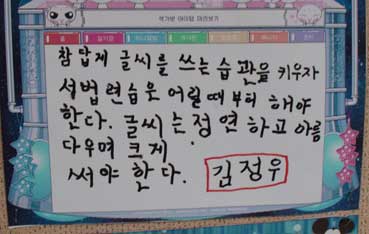 참답게 글씨를 쓰는 습관을 키우자
서법련습은 어릴때부터 해야
한다. 글씨는 정연하고 아름
다우며 크게
써야 한다. 김정우